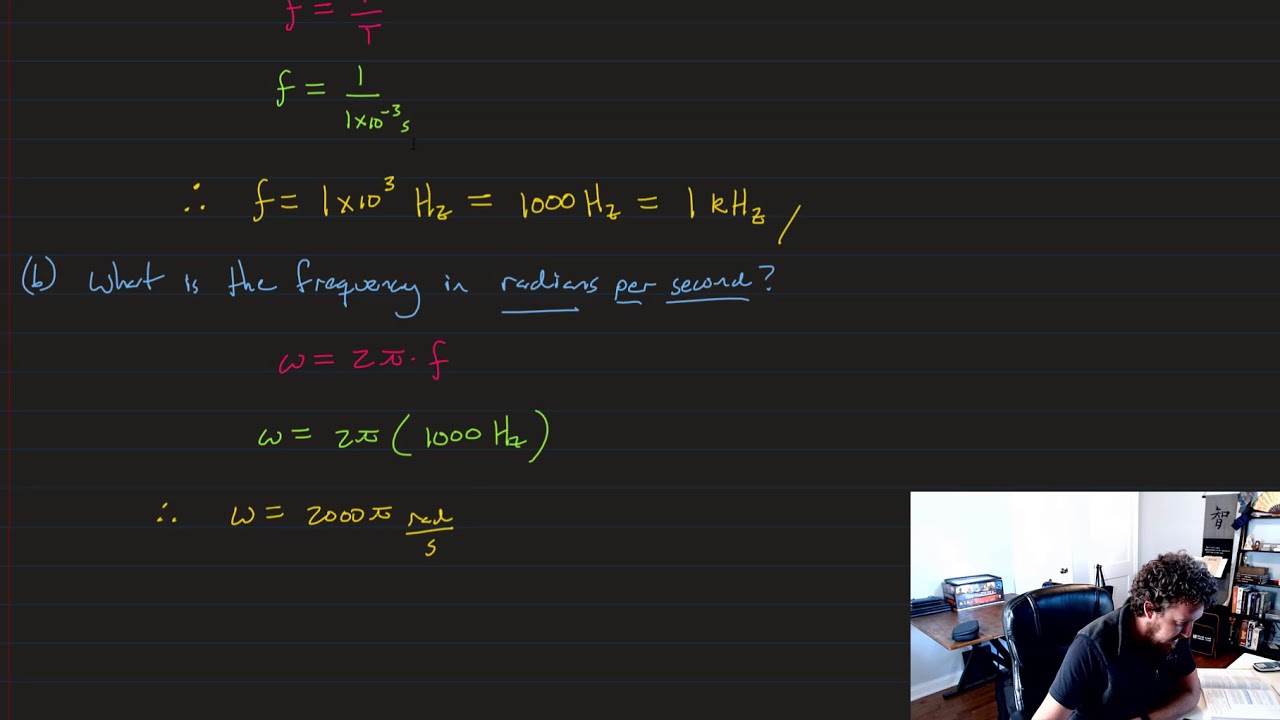 f = 1/T
f = 1/(1×10⁻³ s)
∴ f = 1×10³ Hz = 1000 Hz = 1 kHz
(b) What is the frequency in radians per second?
ω = 2π · f
ω = 2π (1000 Hz)
∴ ω = 2000π rad/s
智